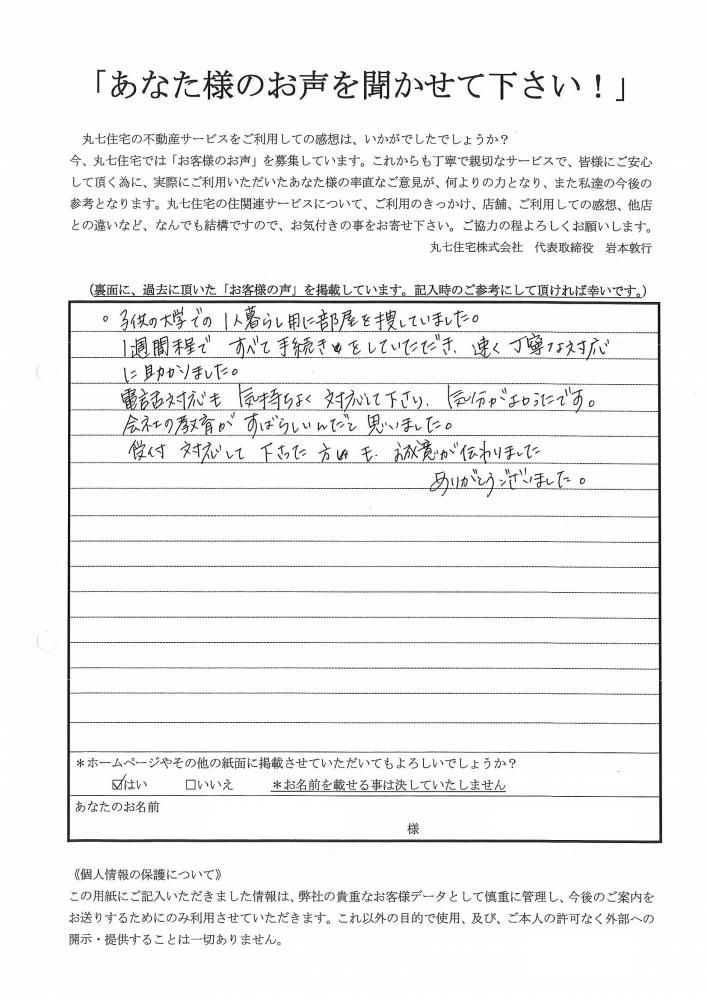 「あなた様のお声を聞かせて下さい！」
丸七住宅の不動産サービスをご利用しての感想は、いかがでしたでしょうか？
今、丸七住宅では「お客様のお声」を募集しています。これからも丁寧で親切なサービスで、皆様にご安心
して頂く為に、実際にご利用いただいたあなた様の率直なご意見が、何よりの力となり、また私達の今後の
参考となります。丸七住宅の住関連サービスについて、ご利用のきっかけ、店舗、ご利用しての感想、他店
との違いなど、なんでも結構ですので、お気付きの事をお寄せ下さい。ご協力の程よろしくお願いします。
丸七住宅株式会社　代表取締役　岩本敦行
（裏面に、過去に頂いた「お客様の声」を掲載しています。記入時のご参考にして頂ければ幸いです。）
。子供の大学での1人暮らし用に部屋を捜していました。
1週間程で すべて手続きをしていただき、速く丁寧な対応
に助かりました。
電話対応も 気持ちよく 対応して下さり、気分がよかったです。
会社の教育が すばらしいんだと思いました。
受付 対応して 下さった 方も、誠意が伝わりました
ありがとうございました。
＊ホームページやその他の紙面に掲載させていただいてもよろしいでしょうか？
☑はい　□いいえ　＊お名前を載せる事は決していたしません
あなたのお名前
様
《個人情報の保護について》
この用紙にご記入いただきました情報は、弊社の貴重なお客様データとして慎重に管理し、今後のご案内を
お送りするためにのみ利用させていただきます。これ以外の目的で使用、及び、ご本人の許可なく外部への
開示・提供することは一切ありません。